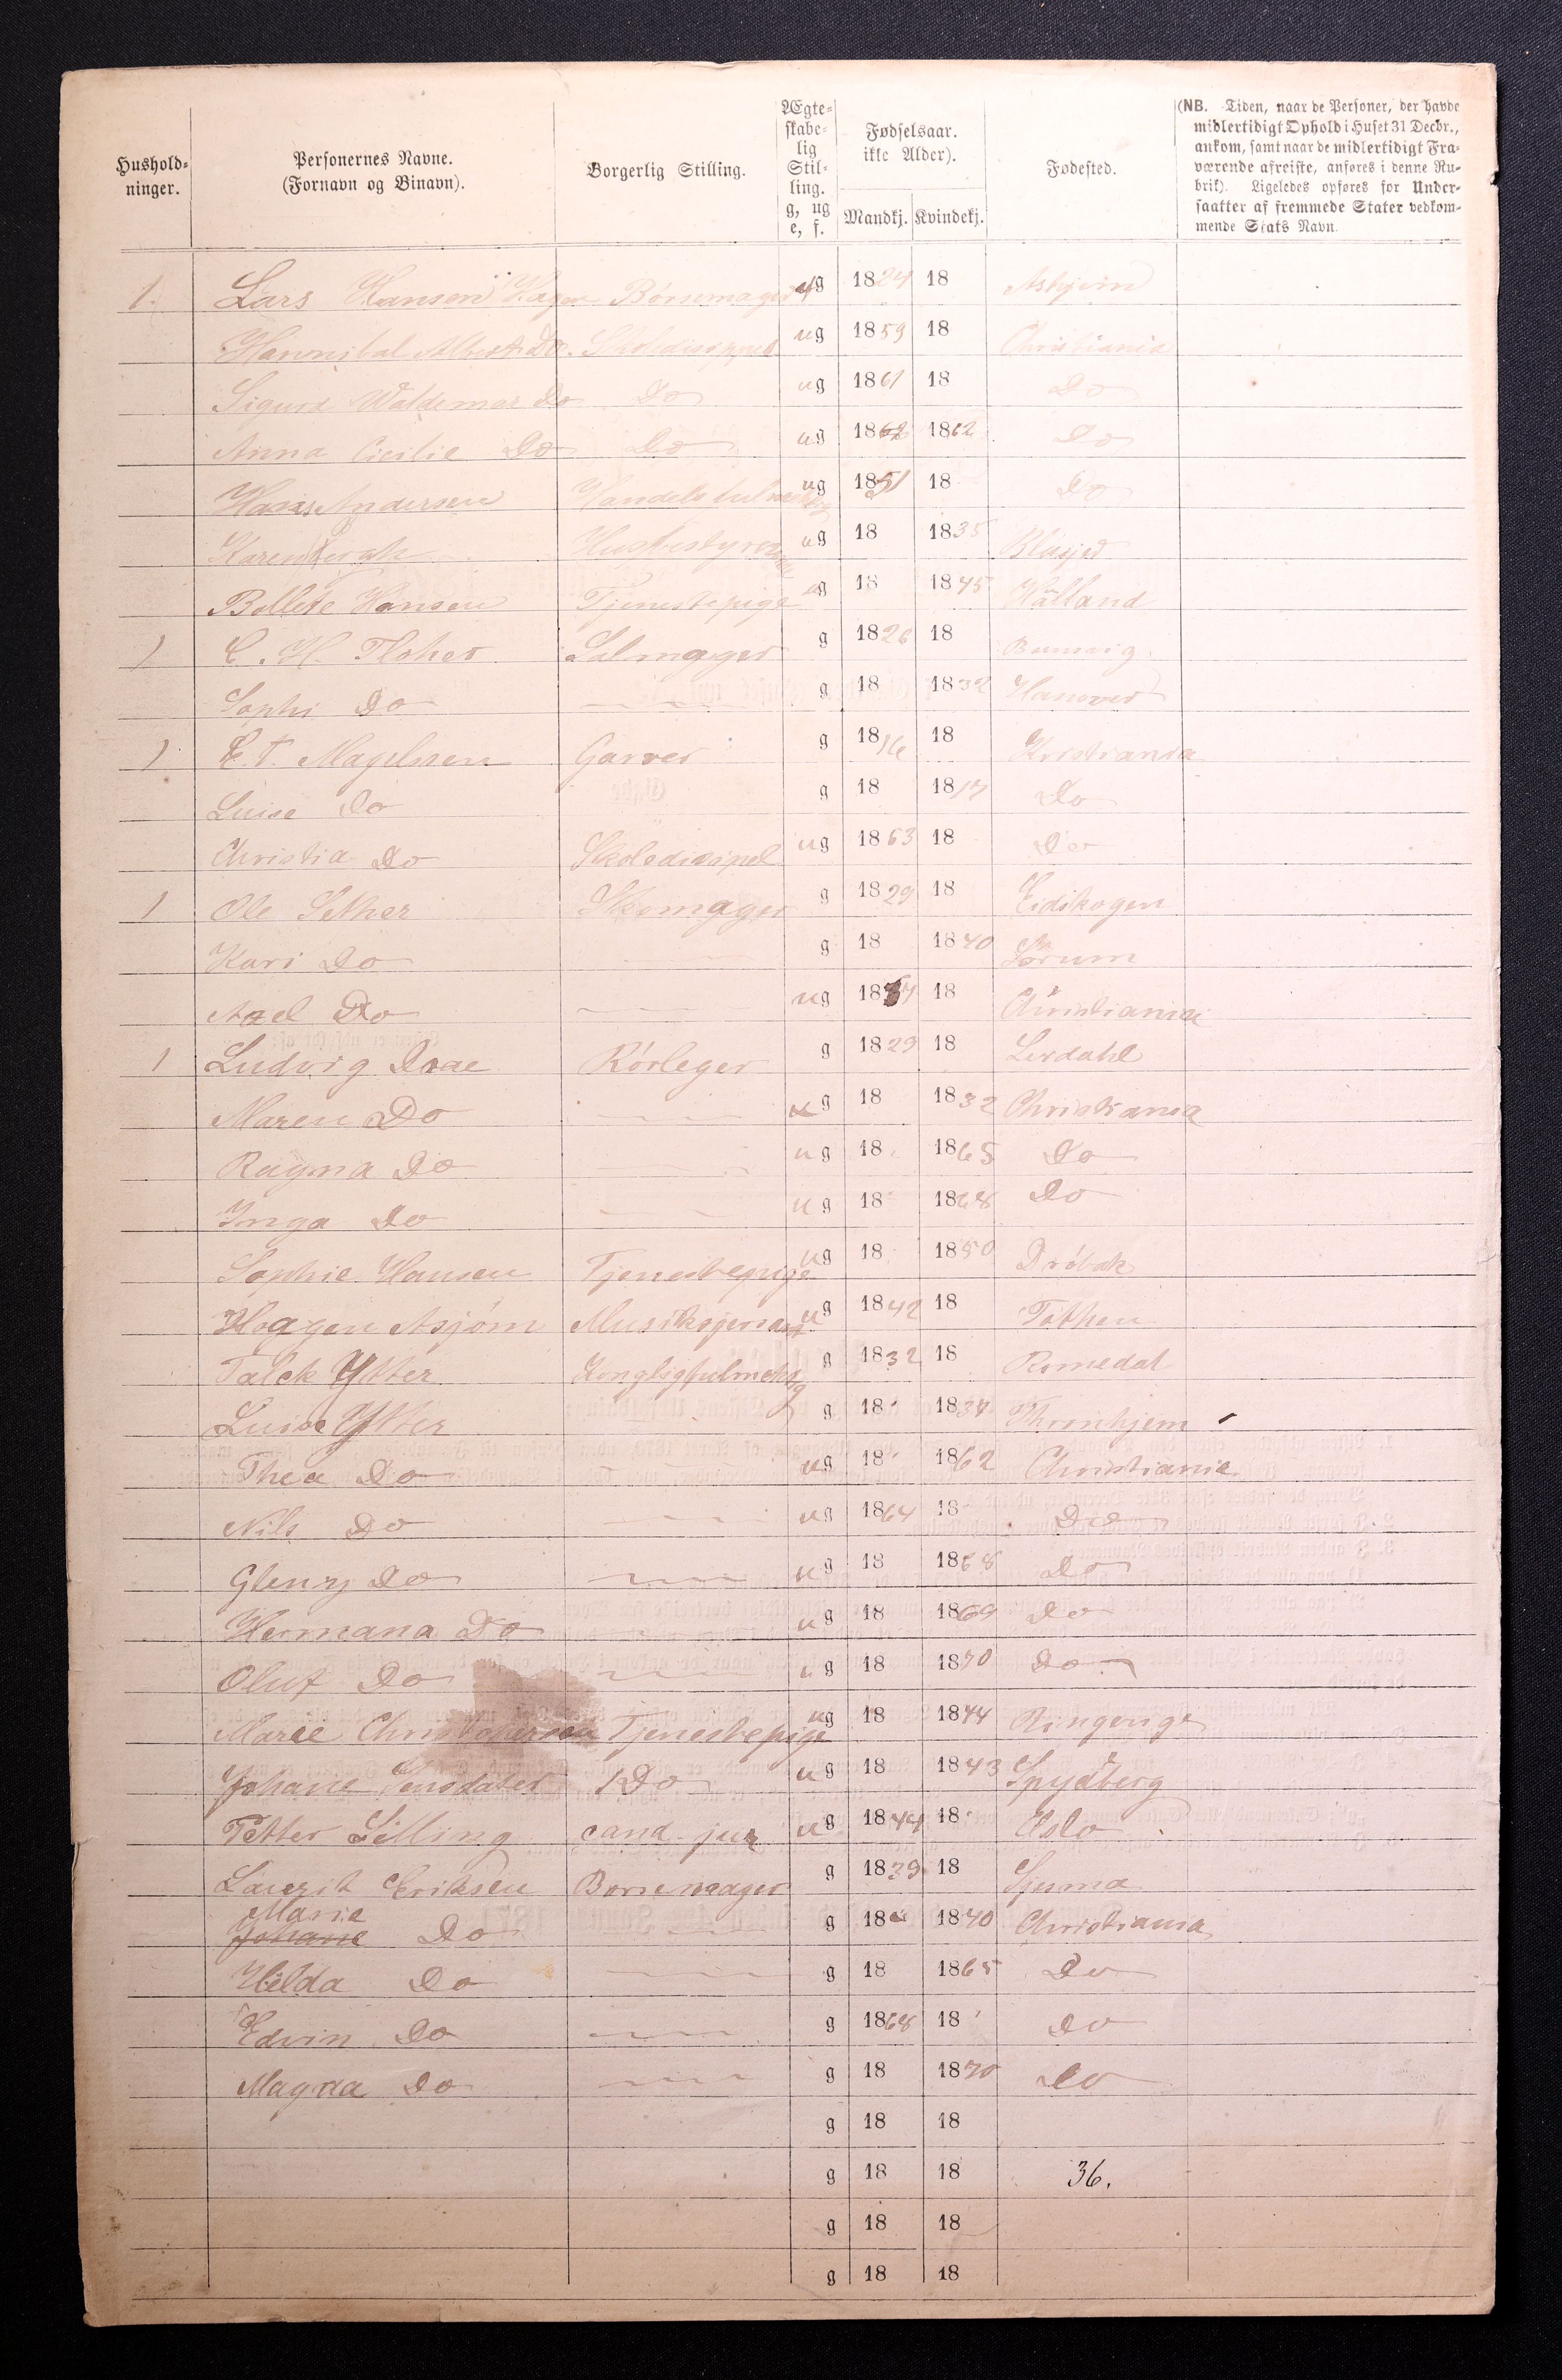 Hushold-
ninger.
Personernes Navne.
(Fornavn og Binavn).
Borgerlig Stilling.
Ægte-
skabe-
lig
Stil-
ling.
g, ug
e, f.
Fødselsaar.
ikke Alder).
Mandkj. Kvindekj.
Fødested.
(NB. Tiden, naar de Personer, der havde
midlertidigt Ophold i Huset 31 Decbr.,
ankom, samt naar de midlertidigt Fra-
værende afreiste, anføres i denne Ru-
brik). Ligeledes opføres for Under-
saatter af fremmede Stater vedkom-
mende Stats Navn.
1. Lars Hansen Hagen Børsemager g 1824 18 Askjem
Hannibal Albert Do. Skoledisippel ug 1859 18 Christiania
Sigurd Waldemar Do Do ug 1861 18 Do
Anna Cicilie Do Do ug 1862 1862 Do
Hans Andersen ug 1851 18 Do
Karen ug 18 1835
Bollete Hansen Tjenestepige ug 18 1845 Hålland
1 C. H. Salmager g 1826 18
Sophi Do g 18 1832 Hanover
1 C. T. Magelssen Garver g 1816 18 Kristiania
Luise Do g 18 1817 Do
Christia Do Skoledicipel ug 1863 18 Do
1 Ole Sether Skomager g 1829 18 Eidskogen
Kari Do g 18 1840 Sørum
Axel Do ug 18 18 Christiania
1 Ludvig Drae Rørleger g 1829 18 Lerdahl
Maren Do g 18 1832 Christiania
Ragna Do ug 18 1865 Do
Inga Do ug 18 1868 Do
Sophie Hansen Tjenestepige ug 18 1850 Drøbak
Haagen Asjøm ug 1842 18 Tothen
Falck Ytter g 1832 18 Romedal
Luise Ytter g 18 1834 Thronhjem
Thea Do ug 18 1862 Christiania
Nils Do ug 1864 18 Do
Glenzy Do ug 18 1868 Do
Hermana Do ug 18 1869 Do
Oluf Do ug 18 1870 Do
Maree Christophersen Tjenestepige ug 18 1844 Ringerige
Johane Jensdater Do ug 18 1843 Spydberg
Petter Lilling cand jur ug 1844 18 Oslo
Lauritz Eriksen Børsemager g 1839 18
Marie
Johane Do g 18 1840 Christiania
Hilda Do g 18 1865 Do
Edvin Do g 1868 18 Do
Magda Do g 18 1870 Do
g 18 18
g 18 18 36.
g 18 18
g 18 18